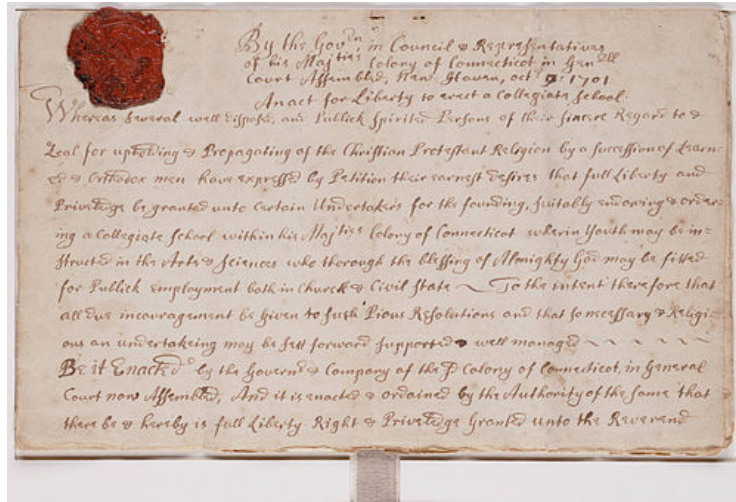 By the Govrn in Council & Representatives
of his Majties Colony of Connecticot in Genrll
Court Assembled, New-Haven, octr 9: 1701
An act for Liberty to erect a Collegiate School.
Whereas several well disposed, and Publick Spirited Persons of their Sincere Regard to &
Zeal for upholding & Propagating of the Christian Protestant Religion by a succession of Learn-
ed & Orthodox men have expressed by Petition their earnest desires that full Liberty and
Priveledge be granted unto Certain Undertakers for the founding, suitably endowing & order-
ing a Collegiate School within his Majties Colony of Connecticot wherin Youth may be in=
structed in the Arts & Sciences who thorough the blessing of Almighty God may be fitted
for Publick employment both in Church & Civil State To the intent therefore that
all due incouragement be Given to such Pious Resolutions and that so necessary & Religi-
ous an undertakeing may be sett forward supported & well managed
Be it Enacted by the Governr & Company of the sd Colony of Connecticot, in General
Court now Assembled, And it is enacted & ordained by the Authority of the same that
there be & hereby is full Liberty Right & Priveledge Granted unto the Reverend